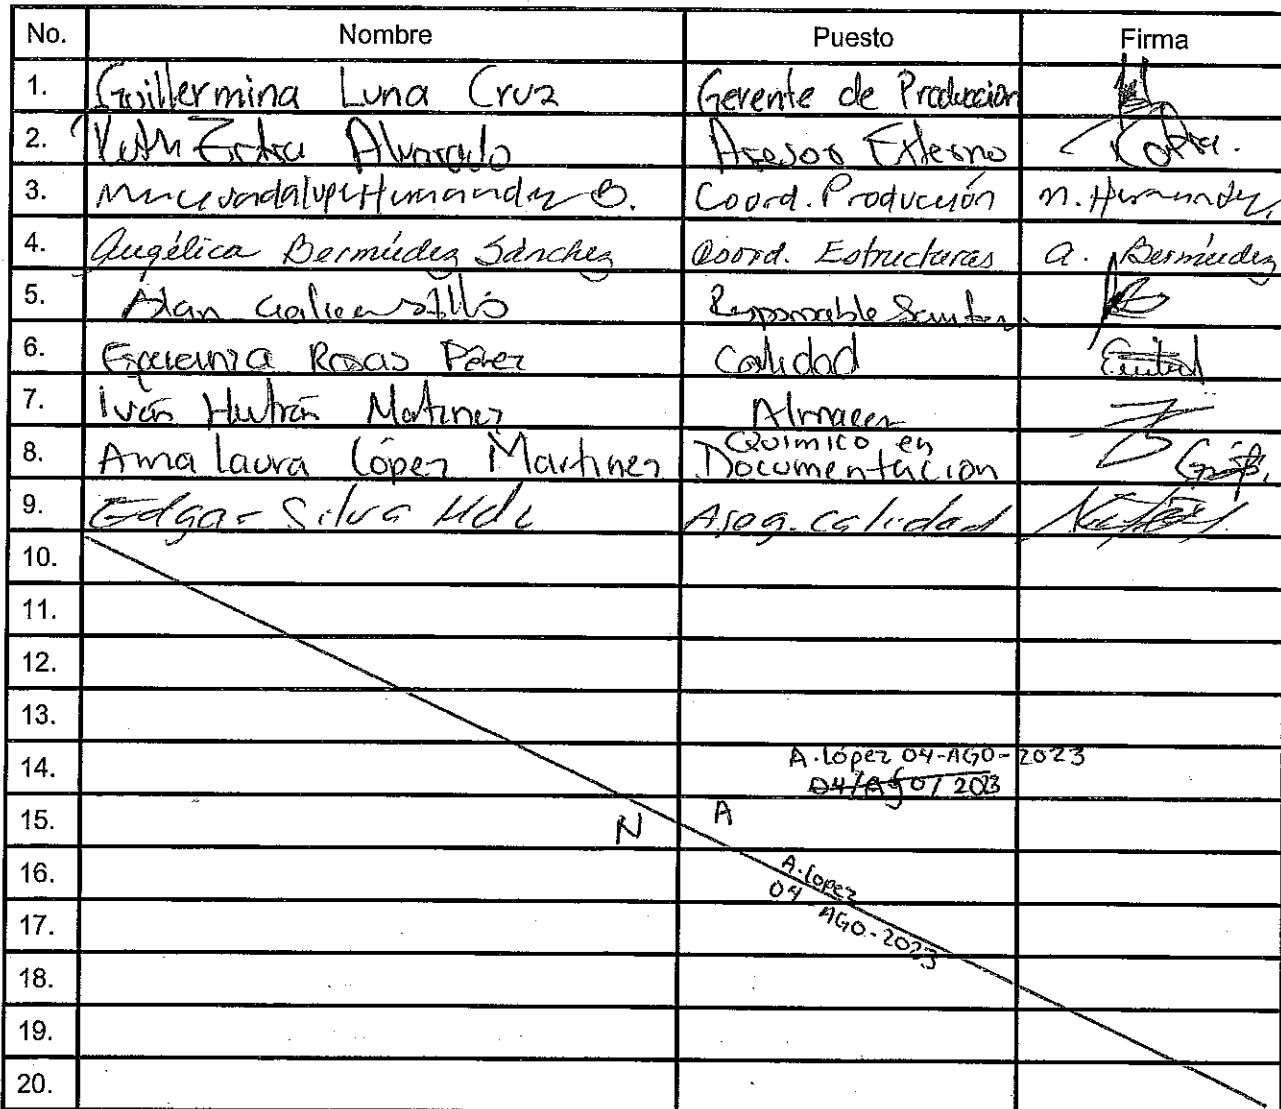 No. Nombre Puesto Firma
1. Guillermina Luna Cruz Gerente de Produccion
2. Alvarado Asesor Externo
3. Coord. Producción M. Hernandez
4. Angélica Bermúdez Sánchez Coord. Estructuras A. Bermúdez
5. Alan Responsable
6. Rosas Pérez Calidad
7. Iván Almacen
8. Ana Laura López Martinez Químico en
Documentacion
9. Edgar Silva Hdz Aseg. calidad
10.
11.
12.
13.
14. A. López 04-AGO-2023
04/Ago/2023
15. N A
16. A. Lopez
04-AGO-2023
17.
18.
19.
20.